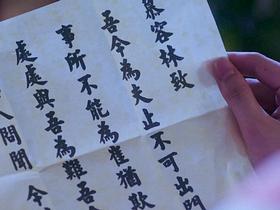 慕容休致
吾令為夫上不可出門
事所不能為準猶欺
處處與吾為難吾
人聞聞令